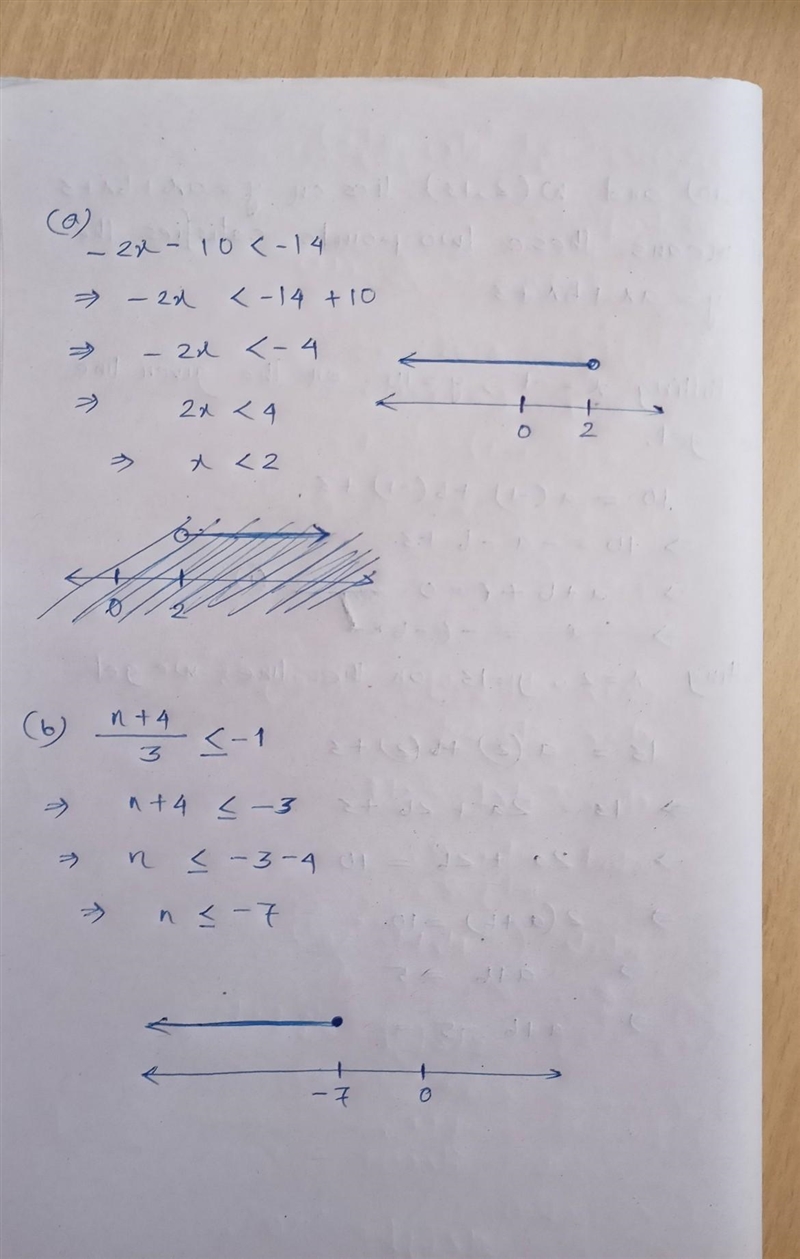 (a)
-2x - 10 < -14
⇒ -2x < -14 + 10
⇒ -2x < -4
⇒ 2x < 4
⇒ x < 2
0 2
0 2
(b) n+4/3 ≤ -1
⇒ n+4 ≤ -3
⇒ n ≤ -3-4
⇒ n ≤ -7
-7 0